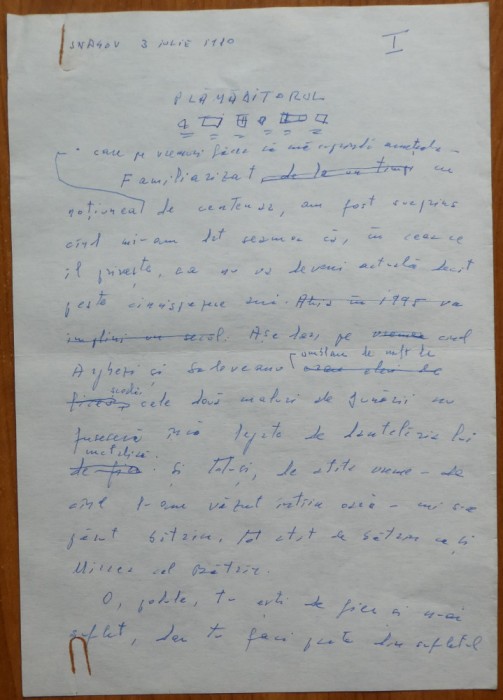 SNAGOV 3 IULIE 1980
I
PLĂMĂDITORUL
care pe vremuri făcea să mă cuprindă ameţeala -
Familiarizat, de la un timp cu
noţiunea de centenar, am fost surprins
cînd mi-am dat seama că, în ceea ce
îl priveşte, ea nu va deveni actuală decît
peste cincisprezece ani. Abia în 1995 va
împlini un secol. Aşadar, pe vremea cînd
Arghezi şi Sadoveanu umblau de mult de
cele două maluri de Dunării nu
fuseseră încă legate de dantelăria lui
metalică. Şi totuşi, de atîta vreme - de
cînd l-am văzut întîia oară - mi s-a
părut bătrîn, tot atît de bătrîn ca şi
Mircea cel Bătrîn.
O, podule, tu eşti de fier şi n-ai
suflet, dar tu faci parte din sufletul